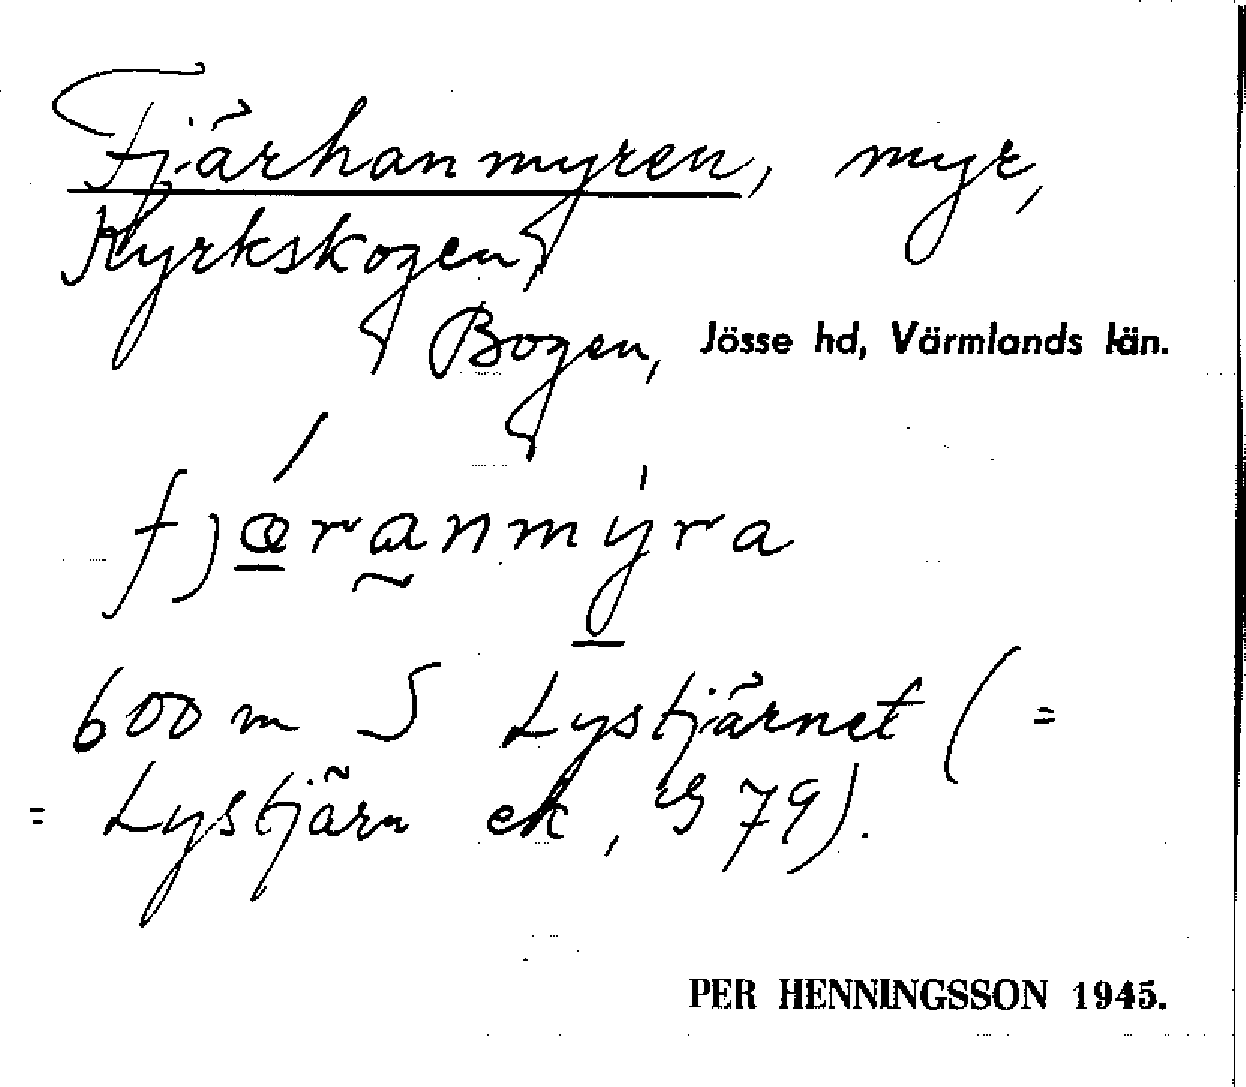 Fjärhanmyren, myr,
Kyrkskogen
Bogen, Jösse hd, Värmlands län.
fjæranmýra
600 m S Lystjärnet (=
= Lystjärn ek, 79).
PER HENNINGSSON 1945.